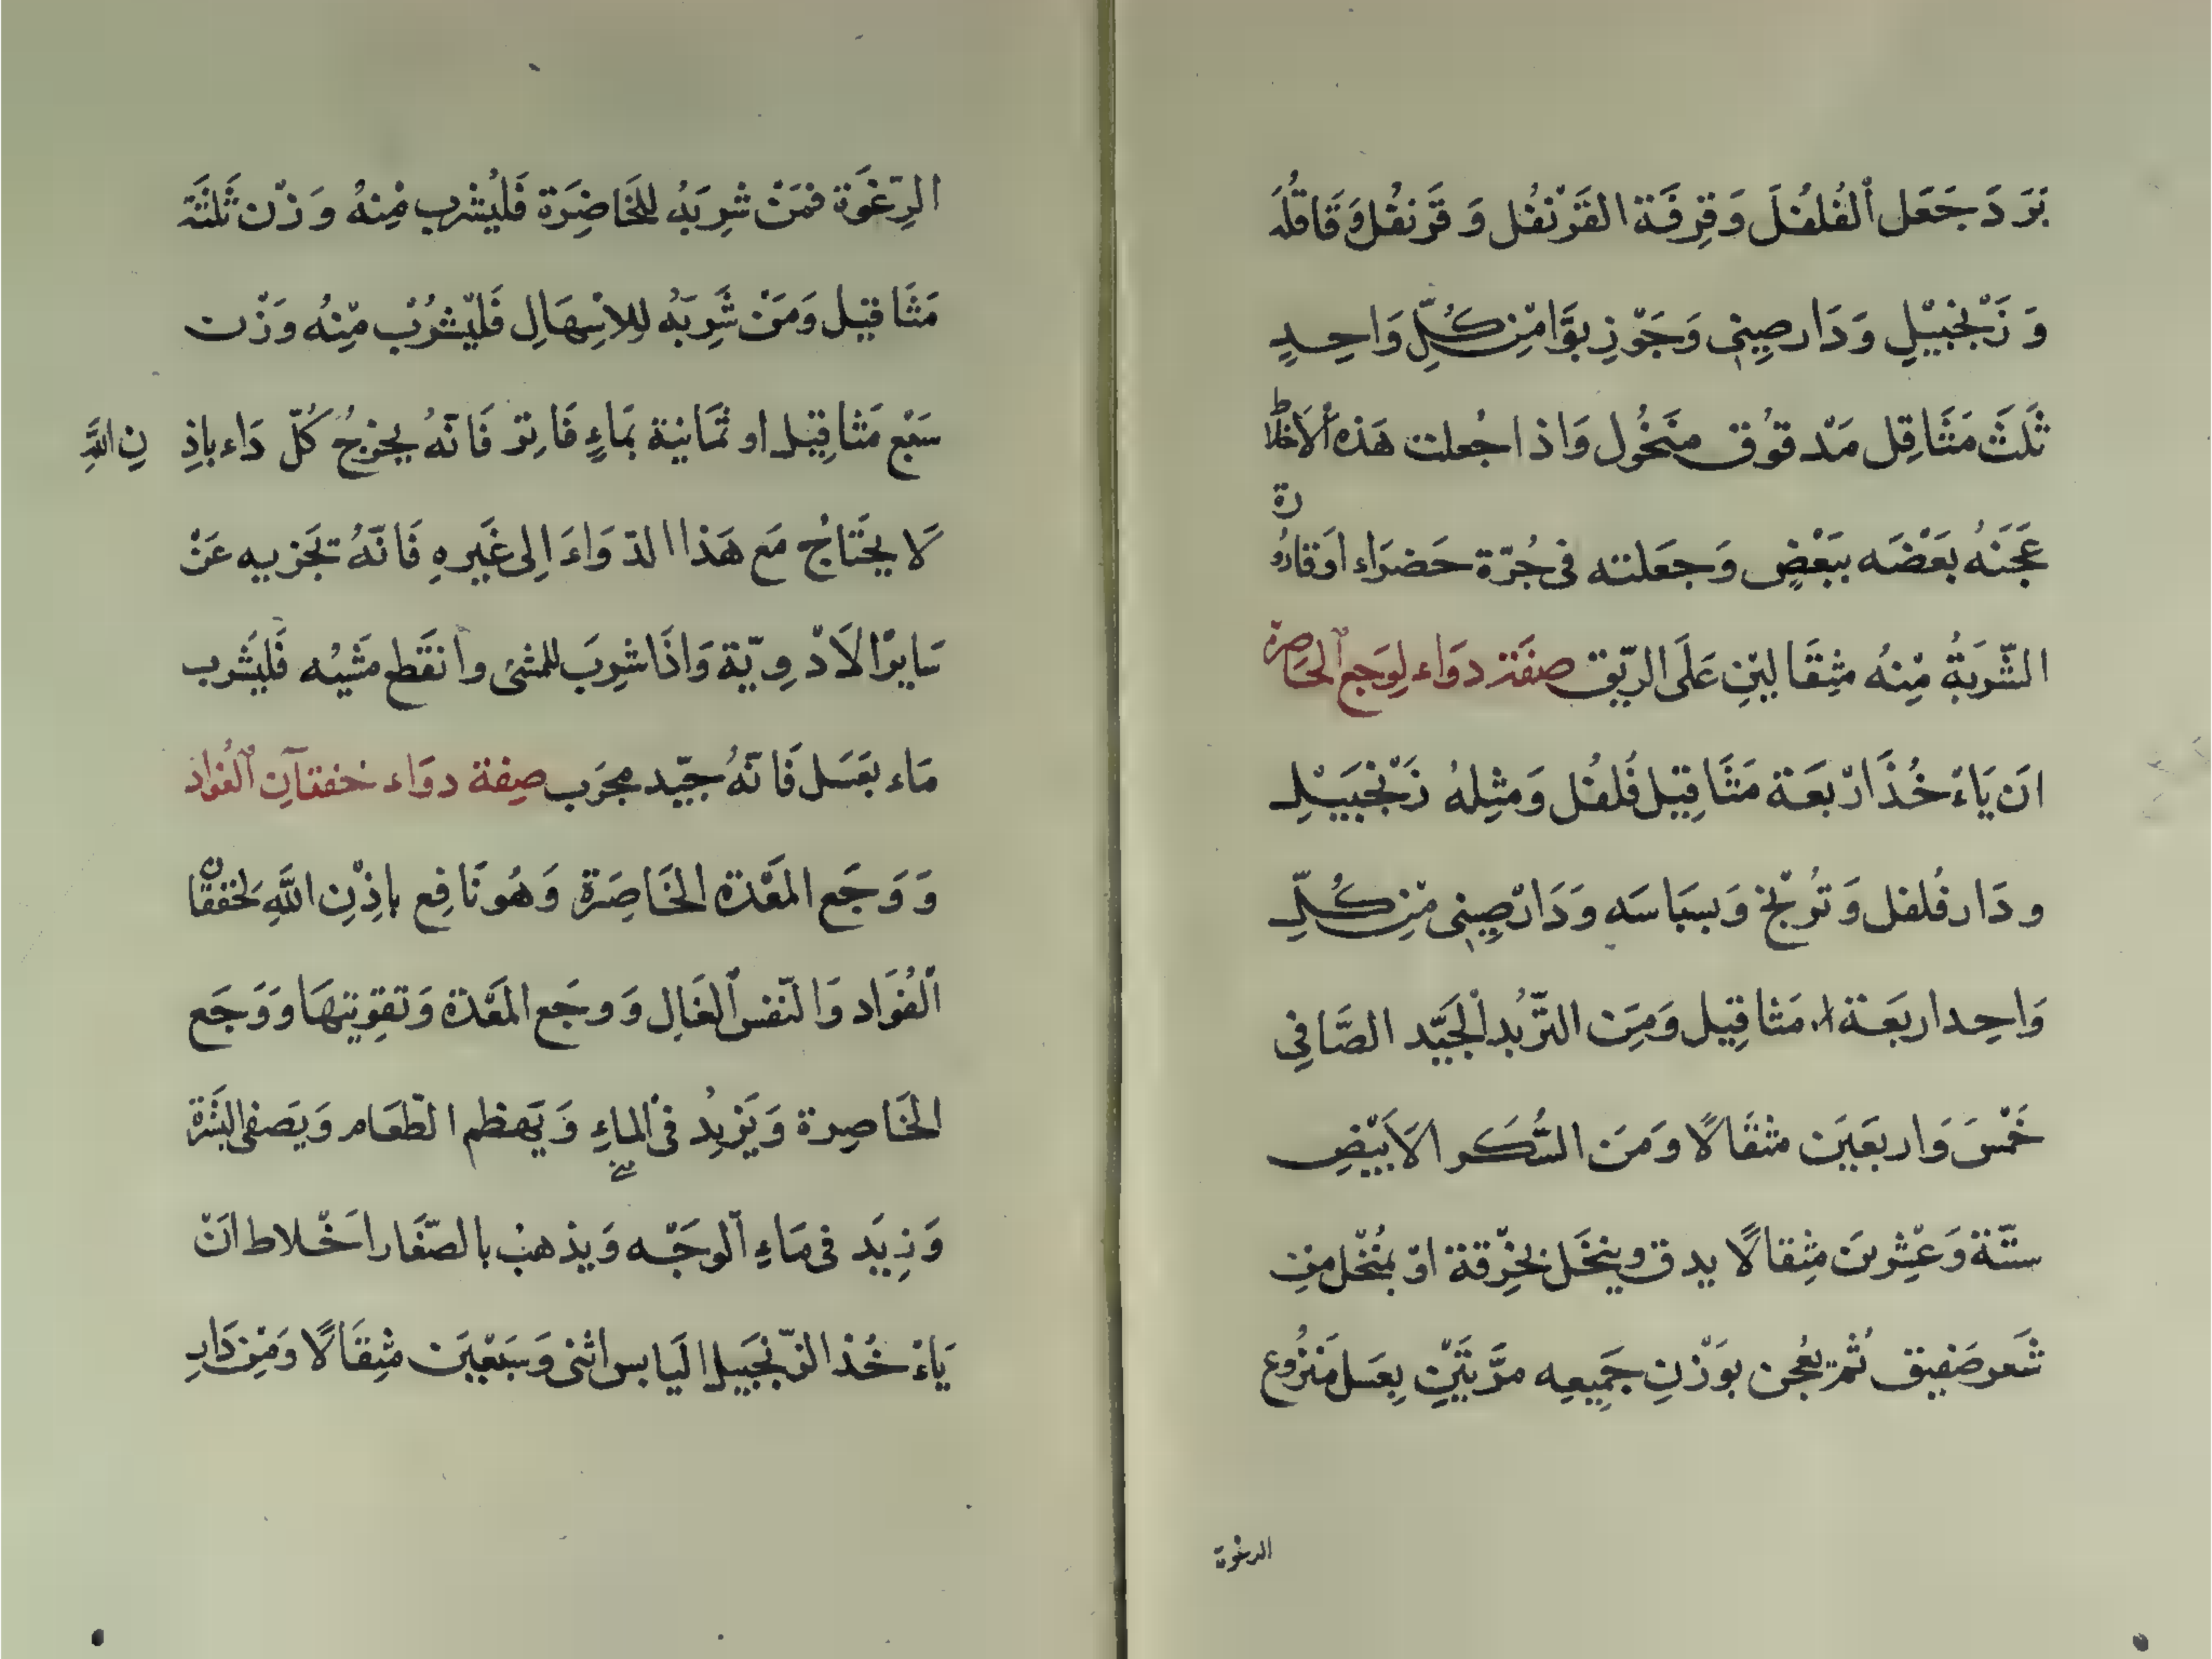 بَرَدَ جَعَل ٱلفُلفُلَ وَقِرفَة القَرَنْفُل وَقَرَنفُل وَقَاقُلَه
وَزَنْجَبيْلٍ وَدَارصِينِى وَجَوْزِ بوَّا مْنِ كُلِّ وَاحِدٍ
ثَلَثَ مَثَاقِل مَدْقوُق منَخُول وَاذا جُعلت هَذه ٱلاَخلاط
عَجَنَهُ بَعْضَه ببَعْضٍ وَجعَلته فى جُرّة حَضرَاء اَوقارُورة
الشَّربَةُ مِنهُ مثِقَالينِ عَلَى الرّيق صفَة دوَاء لِوَجع ٱلخَاصرة
انَ يَاءْخُذَ ارْبعَة مَثَاقِيل فُلفُل وَمثِلهُ زَنْجَبَيْلِ
ودَارفُلفل وَتُرنْج وَبسبَاسَه وَدَارْصِينِى مْنِ كُلِّ
وَاحِد اربَعَة مَثاقِيل وَمِنَ التّربُد ٱلجَيَّد الصَّافِي
خَمْسَ وَاربَعَينَ مثقَالًا وَمنَ السُّكَر الاَبيَضِ
ستّة وَعْشِرينَ مثِقالًا يدق وينخَل بخِرْقة اوْ بمُنْخُل منِ
شَعر صَفيق ثُمّ يعُجن بوَزْنِ جَمِيعِه مرَّ تَيْنِ بِعَسَل مَنزُوع
الرغوة
الرِغْوَة فمَنْ شرِبَهُ للخَاضِرَة فَليُشرب مْنِهُ وَزْن ثَلثَة
مَثَاقيل وَمَنْ شَرِبَهُ لِلاِسْهَالِ فَليْشُربْ مِنّهُ وَزْن
سَبْع مَثاقِيل او ثمَانية بمَاءٍ فَاتِرْ فَانّهُ يخرْجُ كُلّ دَاء باذِ نِ اللَّهِ
لَا يحَتَاجُ مَع هَذا الدّوَاءَ اِلى غَيرهِ فَانّهُ تجَزيه عَنْ
سَايرْ الاَدْوِيّة وَاذَا شرِبَ للمشى وانقَطع مَشَيْه فَليَشَرب
مَاء بعَسَل فَانّهُ جيّد مجرَب صِفة دوَاء خفقآنِ ٱلفُواد
وَوَجَع المَعْدة الخَاصِرَة وَهُو نَافِع باِذِنِ اللَّهِ لخفقان
ٱلفُوَاد وَالنّفس ٱلغَالِ وَوجَع المَعْدة وَتقِويتهَا وَوَجَع
الخَاصِرة وَيَزيدُ فى ٱلماءِ وَيَهظم الطّعَام وَيَصفى البَشَرة
وَنِيَد فى مَاءِ ٱلوجْه وَيذهبُ بالصّفَار اخْلاط انَ
يَاءْخُذ الزّنجَبيل اليَابس اثنى وَسَبْعِيَن مثِقَالًا وَمْنِ دَارِ